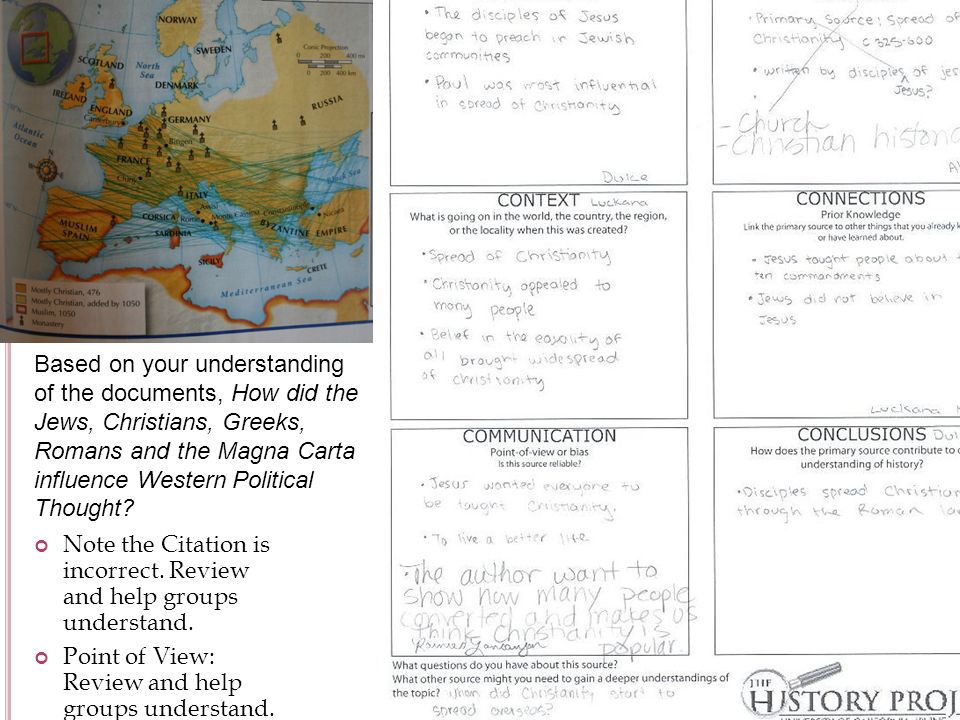 NORWAY
SWEDEN
Conic Projection
0 200 400 mi
0 200 400 km
SCOTLAND
North
Sea
DENMARK
IRELAND
ENGLAND
Canterbury
RUSSIA
GERMANY
Bingen
Atlantic
Ocean
FRANCE
Cluny
Black Sea
ITALY
Assisi
CORSICA
Rome
Monte Cassino
Constantinople
Nicaea
MUSLIM
SPAIN
SARDINIA
BYZANTINE EMPIRE
SICILY
CRETE
Mediterranean Sea
Mostly Christian, 476
Mostly Christian, added by 1050
Muslim, 1050
Monastery
Based on your understanding
of the documents, How did the
Jews, Christians, Greeks,
Romans and the Magna Carta
influence Western Political
Thought?
Note the Citation is
incorrect. Review
and help groups
understand.
Point of View:
Review and help
groups understand.
• The disciples of Jesus
began to preach in Jewish
communities
• Paul was most influential
in spread of Christianity
Dulce
• Primary Source: Spread of
Christianity c 325-600
• written by disciples of jes
Jesus?
- Church
- Christian
CONTEXT Luckana
What is going on in the world, the country, the region,
or the locality when this was created?
• Spread of Christianity
• Christianity appealed to
many people
• Belief in the equality of
all brought widespread
of christianity
CONNECTIONS
Prior Knowledge
Link the primary source to other things that you already k
or have learned about.
- Jesus taught people about t
ten commandments
• Jews did not believe in
Jesus
Luckana
COMMUNICATION
Point-of-view or bias
Is this source reliable?
• Jesus wanted everyone to
be taught Christianity.
• To live a better life
• The author want to
show how many people
converted and makes us
think Christianity is
popular.
CONCLUSIONS Dul
How does the primary source contribute to o
understanding of history?
• Disciples spread Christian
through the Roman
What questions do you have about this source?
What other source might you need to gain a deeper understandings of
the topic? When did Christanity start to
spread overseas?
THE
HISTORY PROJ